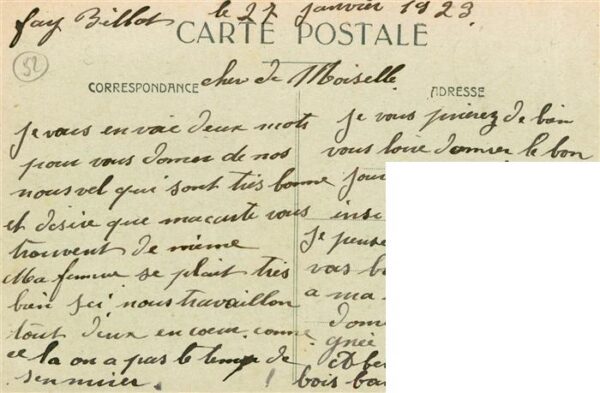 fay Billot le 27 janvier 1923
CARTE POSTALE
52
CORRESPONDANCE
cher de Moiselle
ADRESSE
je vous envoie deux mots
pour vous donner de nos
nouvel qui sont très bonne
et desire que ma carte vous
trouvent de même
Ma femme se plait très
bien ici nous travaillon
tout deux en coeur comme
ce la on a pas le temp de
senuier
je vous prierez de bien
vous loire donner le bon
jour
je pense
vas
a ma
gnée
bois